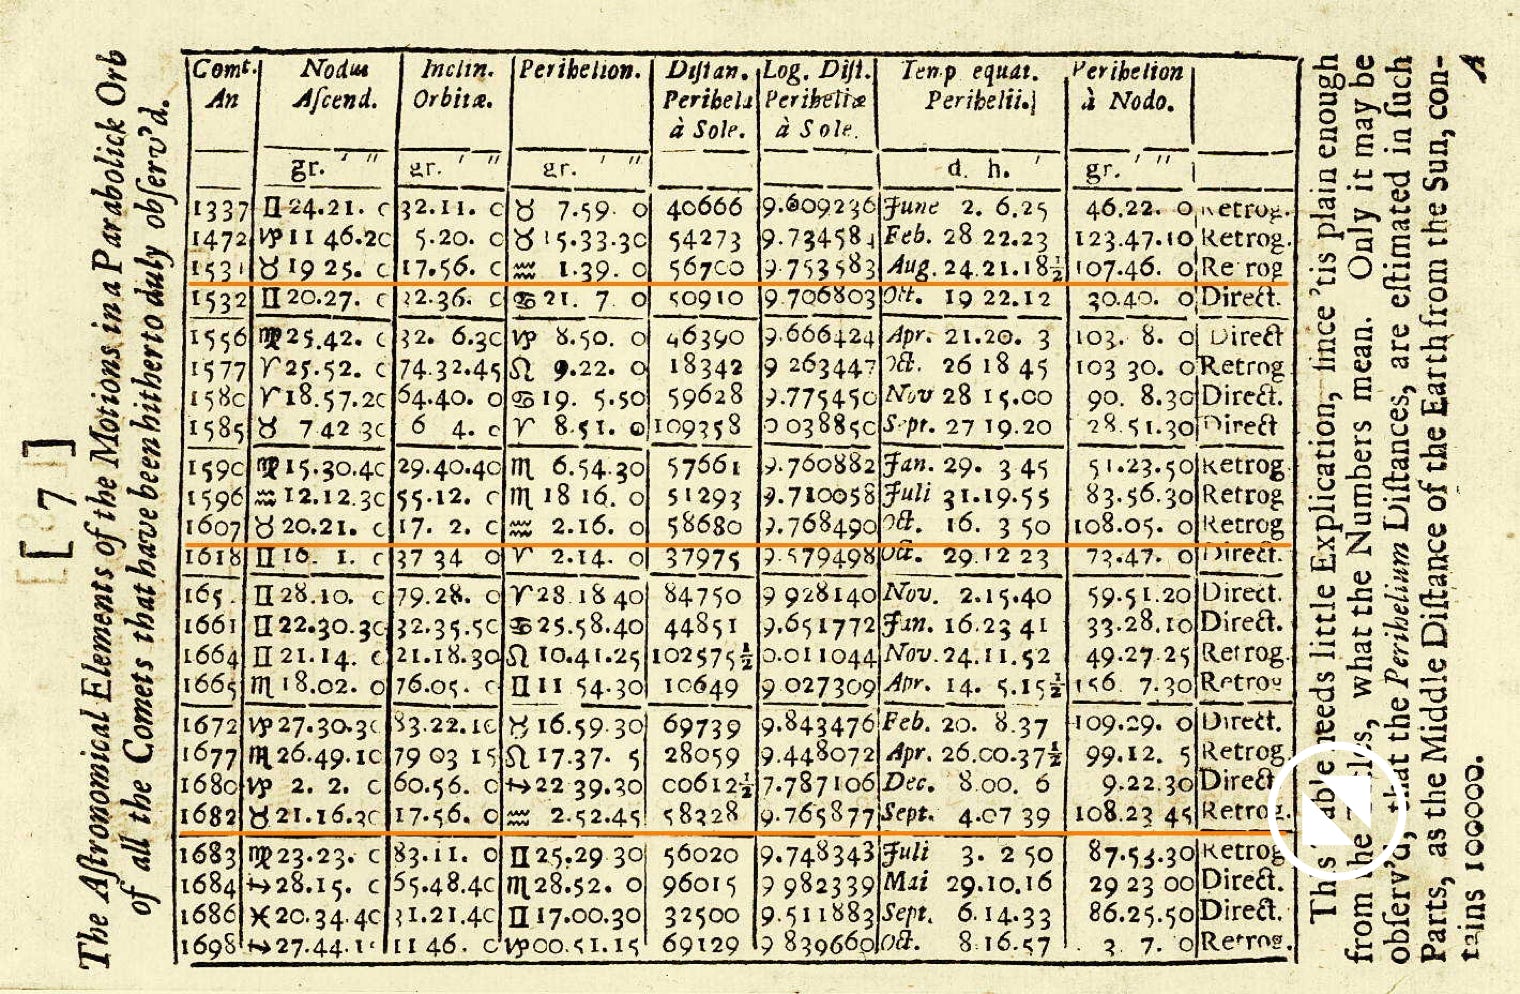 [ 7 ]
The Aſtronomical Elements of the Motions in a Parabolick Orb
of all the Comets that have been hitherto duly obſerv'd.
Comt. An | Nodus Aſcend. | Inclin. Orbitæ. | Perihelion. | Diſtan. Perihela à Sole. | Log. Diſt. Periheliæ à Sole. | Temp equat. Perihelii. | Perihelion à Nodo.
gr. ' " | gr. ' " | gr. ' " | d. h. ' | gr. ' "
1337 ♊ 24.21. 0 32.11. 0 ♉ 7.59. 0 40666 9.609236 June 2. 6.25 46.22. 0 Retrog.
1472 ♑ 11 46.20 5.20. 0 ♉ 15.33.30 54273 9.734584 Feb. 28 22.23 123.47.10 Retrog.
1531 ♉ 19 25. 0 17.56. 0 ♒ 1.39. 0 56700 9.753583 Aug. 24.21.18½ 107.46. 0 Retrog
1532 ♊ 20.27. 0 32.36. 0 ♋ 21. 7. 0 50910 9.706803 Oct. 19 22.12 30.40. 0 Direct.
1556 ♍ 25.42. 0 32. 6.30 ♑ 8.50. 0 46390 9.666424 Apr. 21.20. 3 103. 8. 0 Direct
1577 ♈ 25.52. 0 74.32.45 ♌ 9.22. 0 18342 9 263447 Oct. 26 18 45 103 30. 0 Retrog
1580 ♈ 18.57.20 64.40. 0 ♋ 19. 5.50 59628 9.775450 Nov 28 15.00 90. 8.30 Direct.
1585 ♉ 7 42 30 6 4. 0 ♈ 8.51. 0 109358 0 038850 Sept. 27 19.20 28.51.30 Direct
1590 ♍ 15.30.40 29.40.40 ♏ 6.54.30 57661 9.760882 Jan. 29. 3 45 51.23.50 Retrog
1596 ♒ 12.12.30 55.12. 0 ♏ 18 16. 0 51293 9.710058 Juli 31.19.55 83.56.30 Retrog
1607 ♉ 20.21. 0 17. 2. 0 ♒ 2.16. 0 58680 9.768490 Oct. 16. 3 50 108.05. 0 Retrog
1618 ♊ 16. 1. 0 37 34 0 ♈ 2.14. 0 37975 9.579498 Oct. 29.12 23 73.47. 0 Direct.
165 ♊ 28.10. 0 79.28. 0 ♈ 28.18 40 84750 9 928140 Nov. 2.15.40 59.51.20 Direct.
1661 ♊ 22.30.30 32.35.50 ♋ 25.58.40 44851 9.651772 Jan. 16.23 41 33.28.10 Direct.
1664 ♊ 21.14. 0 21.18.30 ♌ 10.41.25 102575½ 0.011044 Nov. 24.11.52 49.27.25 Retrog.
1665 ♏ 18.02. 0 76.05. 0 ♊ 11 54.30 10649 9 027309 Apr. 14. 5.15½ 156. 7.30 Retrog
1672 ♑ 27.30.30 83.22.10 ♉ 16.59.30 69739 9.843476 Feb. 20. 8.37 109.29. 0 Direct.
1677 ♏ 26.49.10 79 03 15 ♌ 17.37. 5 28059 9.448072 Apr. 26.00.37½ 99.12. 5 Retrog
1680 ♑ 2. 2. 0 60.56. 0 ♐ 22 39.30 00612½ 7.787106 Dec. 8.00. 6 9.22.30 Direct
1682 ♉ 21.16.30 17.56. 0 ♒ 2.52.45 58328 9.765877 Sept. 4.07 39 108.23 45 Retrog.
1683 ♍ 23.23. 0 83.11. 0 ♊ 25.29 30 56020 9.748343 Juli 3. 2 50 87.53.30 Retrog
1684 ♐ 28.15. 0 65.48.40 ♏ 28.52. 0 96015 9 982339 Mai 29.10.16 29 23 00 Direct.
1686 ♓ 20.34.40 31.21.40 ♊ 17.00.30 32500 9.511883 Sept. 6.14.33 86.25.50 Direct.
1698 ♐ 27.44.1 11 46. 0 ♑ 00.51.15 69129 9 839660 Oct. 8.16.57 3. 7. 0 Retrog.
This Table needs little Explication, ſince 'tis plain enough
from the Titles, what the Numbers mean. Only it may be
obſerv'd, that the Perihelium Diſtances, are eſtimated in ſuch
Parts, as the Middle Diſtance of the Earth from the Sun, con-
tains 100000.
A